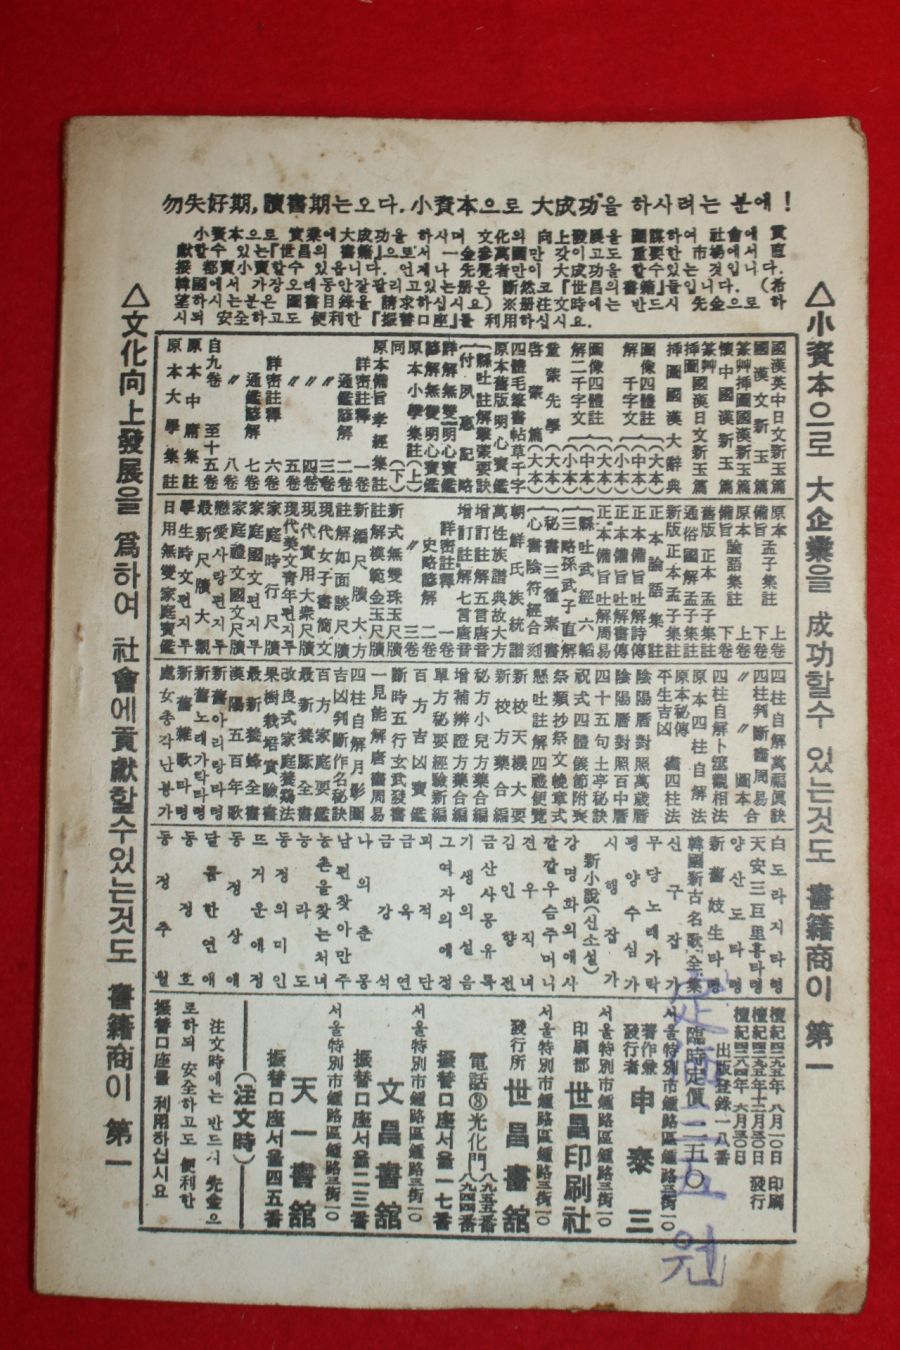 勿失好期, 讀書期는오다. 小資本으로 大成功을 하사려는 분에!
小資本으로 實業에大成功을 하시며 文化의 向上發展을 圖謀하여 社會에 貢
獻할수 있는『世昌의 書籍』으로서
두小賣할수 있읍니다. 언제나
韓國에서 가장오래동안잘팔리고있는册은 斷然코『世昌의書籍』들입니다. (希
望하시는분은 圖書目錄을 請求하십시요) ※册注文時에는 반드시 先金으로 하
시되 安全하고도 便利한『振替口座』를 利用하십시요.
△小資本으로 大企業을 成功할수 있는것도 書籍商이 第一
△文化向上發展을 爲하여 社會에貢獻할수있는것도 書籍商이 第一
國漢英中日文新玉篇
國漢文新玉篇
篆艸挿圖國漢新玉篇
懷中國漢新玉篇
篆艸國漢日文新玉篇
挿圖國漢大辭典
圖像四體註解 千字文
(大本)
(中本)
(小本)
圖像四體註解二千字文
(大本)
(小本)
童蒙先學(大本)
啓蒙篇(大本)
四體毛筆書帖草千字
原本旧版明心寶鑑
懸吐註解擊蒙要訣
詳解無雙明心寶鑑
諺解無雙明心寶鑑
原本小學集註(上)
同(下)
原本備旨孝經集註
詳密註釋 通鑑諺解 一卷
〃 二卷
〃 三卷
〃 四卷
〃 五卷
詳密註釋 通鑑諺解 六卷
七卷
〃 八卷
自九卷 至十五卷
原本中庸集註
原本大學集註
原本備旨 孟子集註 上卷
下卷
原本備旨 論語集註 上卷
下卷
舊版 正本 孟子集註
通俗國解 孟子集註
新版 正本孟子集註
正本論語集註
正本備旨吐解詩傳
正本備旨吐解書傳
正本備旨吐解周易
懸吐武經六韜
三略孫武子直解
秘書三種素書
心書陰符經合刻
朝鮮氏族統譜
萬性族譜典故大方
增訂註解五言唐音
增訂註解七言唐音
詳密註釋 史略諺解 一卷
二卷
〃 三卷
新式無雙珠玉尺牘
註解模範金玉尺牘
新編尺牘大方
註解如面談尺牘
現代女子書簡文
現代實用大衆尺牘
現代美文靑年편지투
家庭時行尺牘
家庭國文편지투
家庭禮文國文尺牘
戀愛사랑편지투
最新尺牘大觀
學生時文편지투
日用無雙家庭寶鑑
四柱自解萬福眞訣
四柱判斷舊周易合
〃 〃 圖本
四柱自解卜筮觀相法
原本四柱自解法
原本秘傳平生吉凶 四柱法
陰陽曆對照萬歲曆
陰陽曆對照百中曆
四十五句土亭秘訣
祝式四體僕節附奭
祭類抄祭文輓章式
懸吐註解四禮便覽
新校天機大要
新校方藥合編
秘方小兒方藥合編
增補辨證方藥合編
單方秘要經驗新編
百方吉凶寶鑑
斷時五行玄武發書
一見能解唐畵周易
四柱自解月影圖
吉凶判斷作名秘訣
百方家庭要鑑
最新養豚全書
改良式家庭養鷄法
果樹栽培實驗書
最新養蜂全書
漢陽五百年歌
新舊아리랑타령
新舊노래가락타령
新舊雜歌타령
處女총각난봉가
白도라지타령
天安三巨里흥타령
양산도타령
新舊妓生타령
韓國新古名歌全集
신구잡가
무당노래가락
평양수심가
시행잡가
新小說(신소설)
강명화의애사
깔깔우슴주머니
견우직녀
김인향전
금산사몽유록
기생의설음
그여자의애정
괴적단
금옥연
금강석
나의춘몽
남편찾아만주
농촌을찾는처녀
능라도
동정의미인
뜨거운애정
동정상애
달뜸한연애
동정호
동정추월
檀紀四二九五年 八月一〇日 印刷
檀紀四二九五年十二月三〇日 發行
檀紀四二八四年 六月三〇日
出版登錄 一八番
臨時定價 二五〇
서울特別市鍾路區鍾路三街一〇
著作兼發行者 申泰三
서울特別市鍾路區鍾路三街一〇
印刷部 世昌印刷社
서울特別市鍾路區鍾路三街一〇
發行所 世昌書館
電話③光化門 八九五五番
八九四四番
振替口座서울一七番
서울特別市鍾路區鍾路三街一〇
文昌書館
振替口座서울二三番
서울特別市鍾路區鍾路三街一〇
天一書館
振替口座서울四五番
(注文時)
注文時에는 반드시 先金으
로하되 安全하고도 便利한
振替口座를 利用하십시요
원